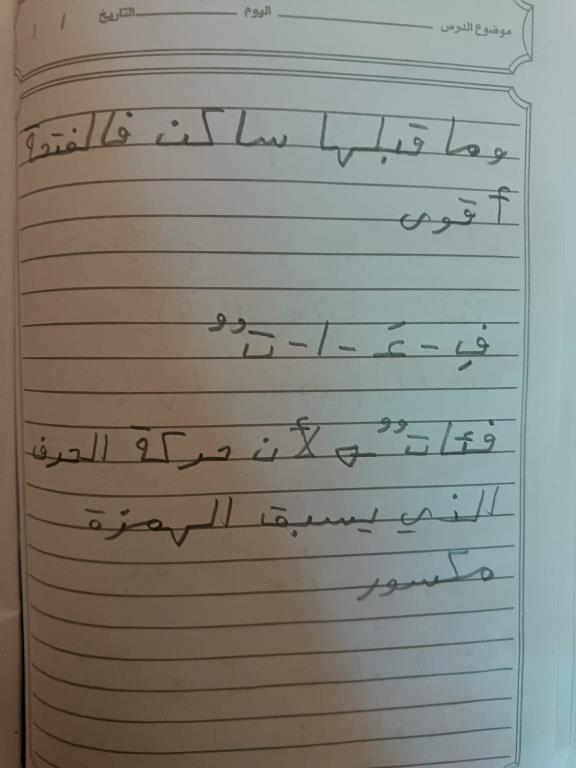 موضوع الدرس اليوم التاريخ / /
وما قبلها ساكن فالفتحة
أقوى
فِ - ءَ - ا - تٌ
فئاتٌ ← لأن حركة الحرف
الذي يسبق الهمزة
مكسور